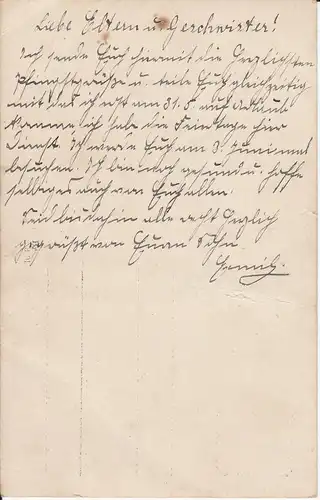 Liebe Eltern u. Geschwister!
Ich sende Euch hiermit die herzlichsten
Pfingstgrüße u. teile Euch gleichzeitig
mit das ich erst am 31.5. auf Urlaub
komme ich habe die Feiertage hier
Dienst. Ich werde Euch am 3. Juni mal
besuchen. Ich bin noch gesund u. hoffe
selbiges auch von Euch allen.
Seid bis dahin alle recht herzlich
gegrüßt von Euren Sohn
Emil.